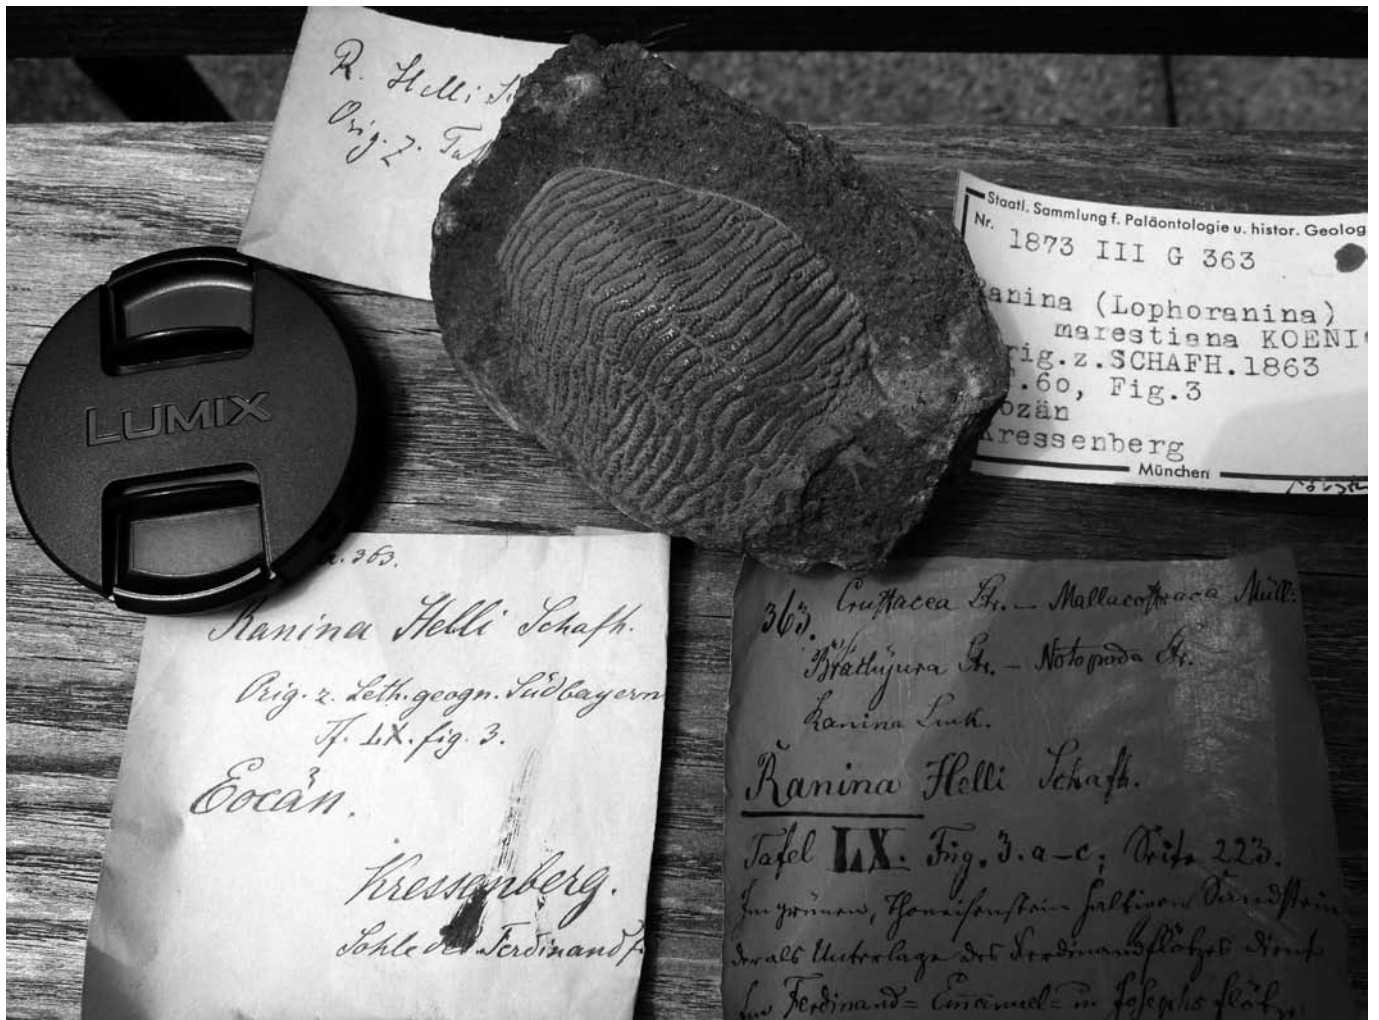 R. Helli
Orig. z.
Staatl. Sammlung f. Paläontologie u. histor. Geolog
Nr. 1873 III G 363
anina (Lophoranina)
marestiana KOENI
rig.z.SCHAFH.1863
.60, Fig.3
ozän
ressenberg
München
LUMIX
363.
Ranina Helli Schafh.
Orig. z. Leth. geogn. Südbayern
Tf. LX. fig. 3.
Eocän.
Kressenberg.
Sohle des Ferdinandf
363. Crustacea Lk. – Mallacostraca Müll.
Notopoda
Ranina Lmk.
Ranina Helli Schafh.
Tafel LX. Fig. 3. a–c; Seite 223.
Im grünen, Thoneisenstein haltigen Sandstein
der als Unterlage des Ferdinandflötzes dient
Im Ferdinand= Emanuel= u Josephsflötz